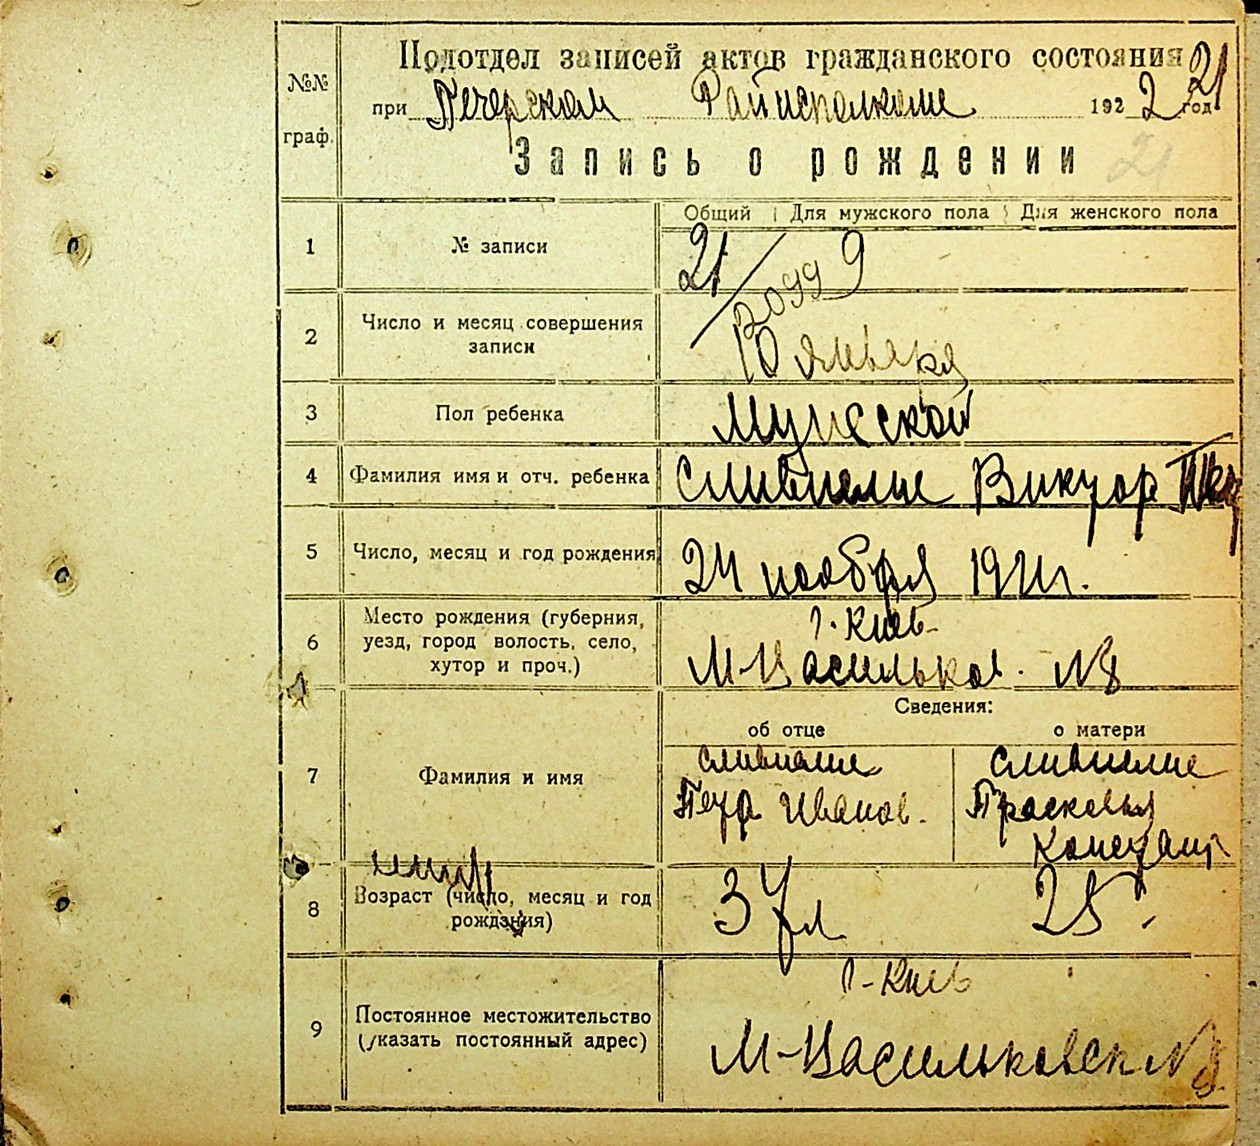 №№ граф.
Подотдел записей актов гражданского состояния
21
при Печерском Райисполкоме 1922 год
Запись о рождении
21
Общий Для мужского пола Для женского пола
1 № записи 21 9
2 Число и месяц совершения записи 10 января
3 Пол ребенка Мужской
4 Фамилия имя и отч. ребенка Виктор
5 Число, месяц и год рождения 24 ноября 1921 г.
6 Место рождения (губерния, уезд, город волость, село, хутор и проч.) г. Киев
М-Васильков. № 8
Сведения:
об отце о матери
7 Фамилия и имя
Петр Иванов. Прасковья
Констант
8 Возраст (число, месяц и год рождения) 25
г-Киев
9 Постоянное местожительство (указать постоянный адрес)
М-Васильковск № 8